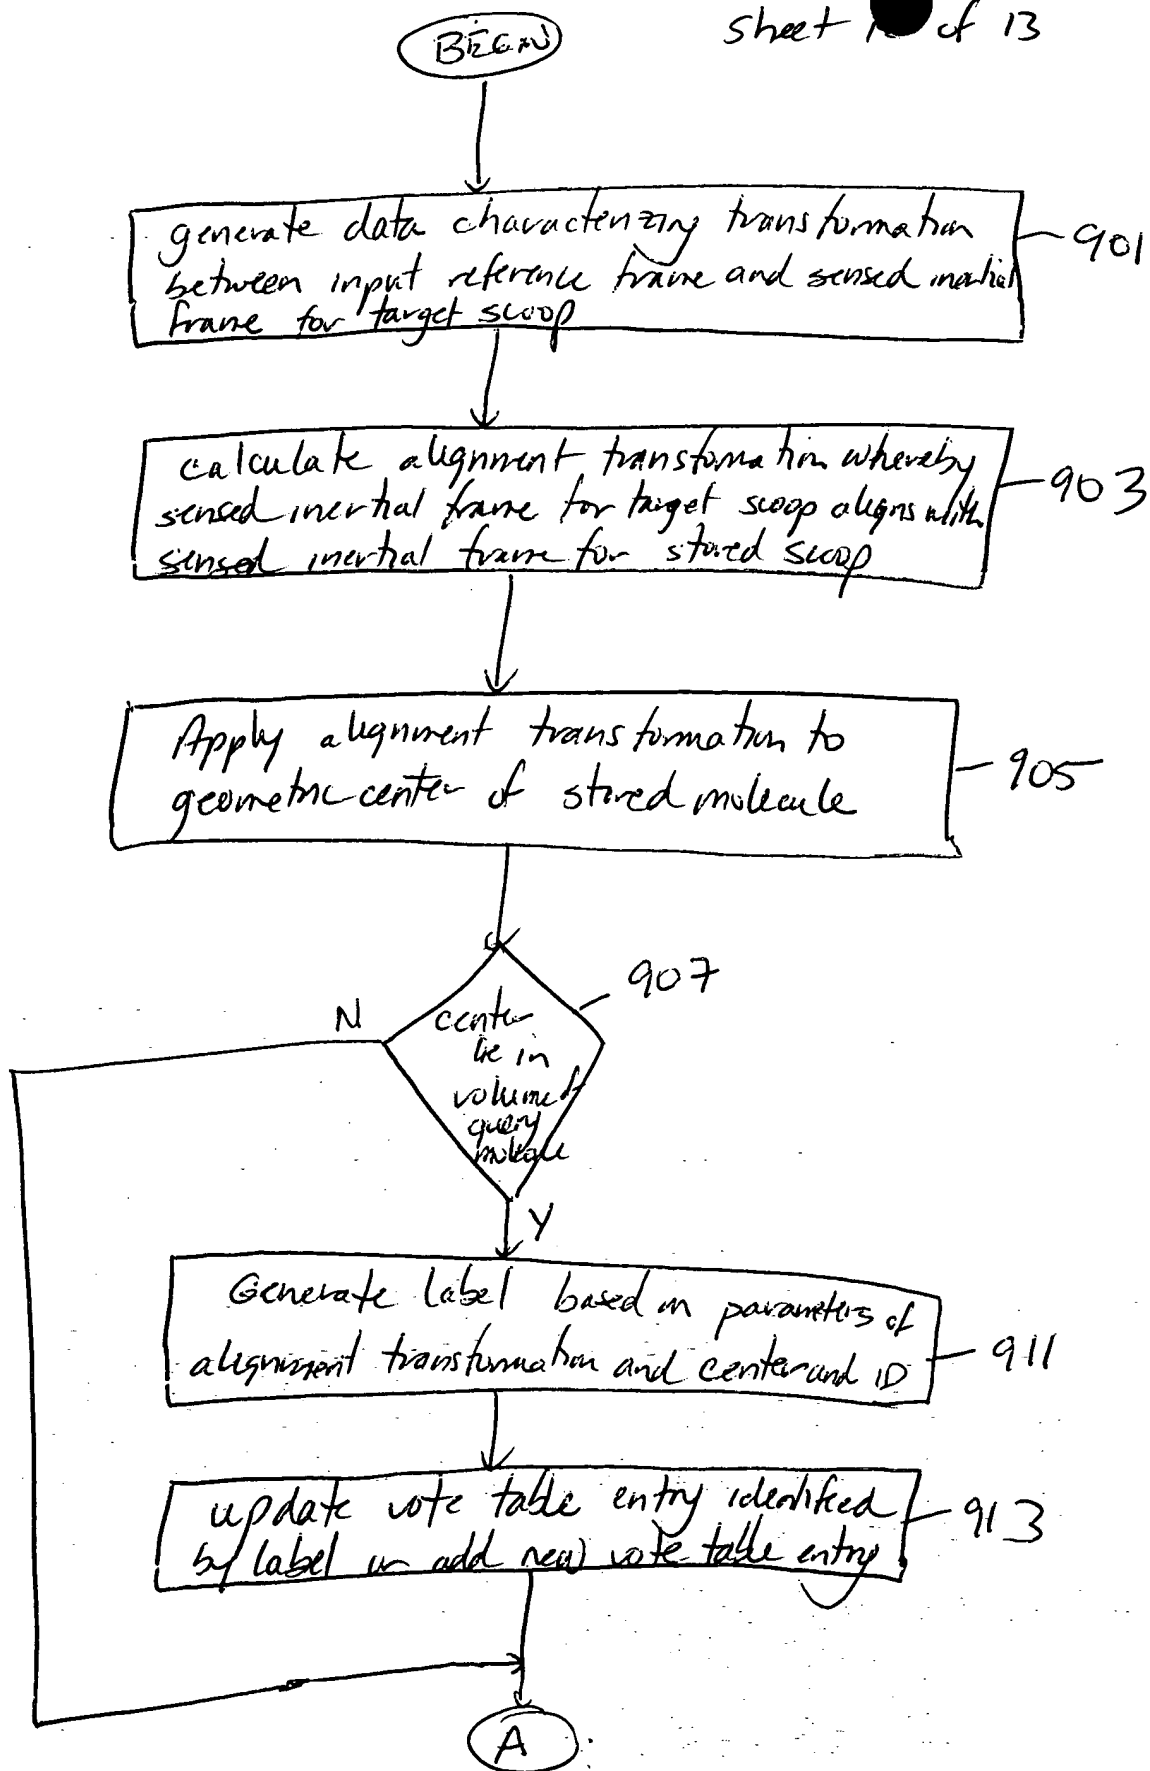 sheet 1 of 13
BEGIN
generate data characterizing transformation
between input reference frame and sensed inertial
frame for target scoop
901
calculate alignment transformation whereby
sensed inertial frame for target scoop aligns with
sensed inertial frame for stored scoop
903
Apply alignment transformation to
geometric center of stored molecule
905
907
N
center
lie in
volume of
query
molecule
Y
Generate label based on parameters of
alignment transformation and center and ID
911
update vote table entry identified
by label or add new vote table entry
913
A